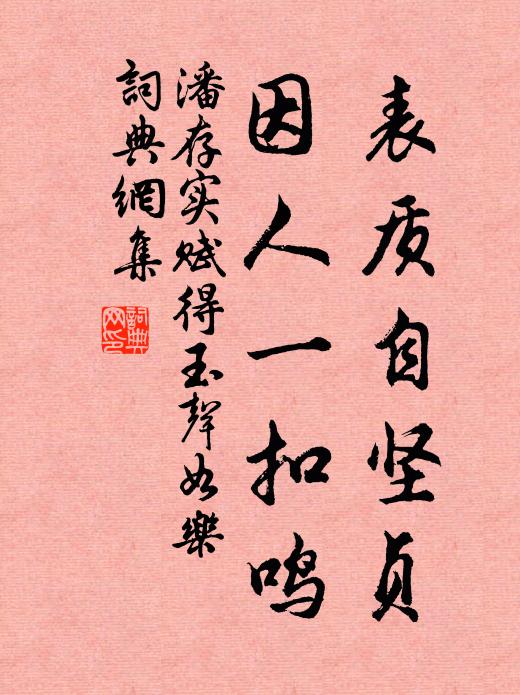 表质自坚贞
因人一扣鸣
潘存实赋得玉聲如樂
詞典網集
詞典
网印